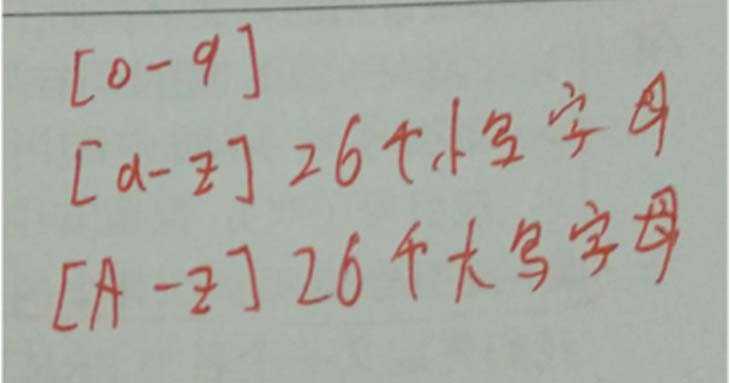 [0-9]
[a-z] 26个小写字母
[A-z] 26个大写字母